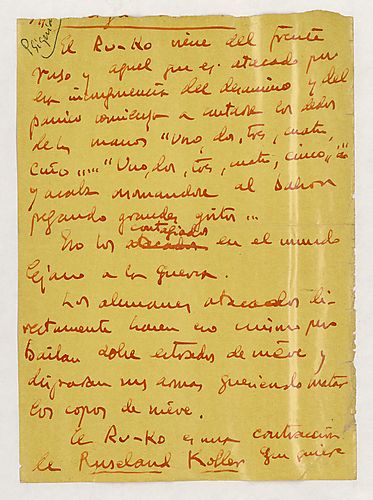 El Ru-Ko viene del frente
ruso y aquel que es atacado por
la incongruencia del dominio y del
panico comienza a contarse los dedos
de las manos "Uno, dos, tres, cuatro,
cinco....." "Uno, dos, tres, cuatro, cinco,,...
y acaba asomandose al balcon
pegando grandes gritos...
Eso los contagiados en el mundo
lejano a la guerra.
Los alemanes atacados di-
rectamente hacen eso mismo pero
bailan sobre entosados de nieve y
disparan sus armas queriendo matar
los copos de nieve.
El Ru-Ko es una contracción
de Russland Koller que quiere